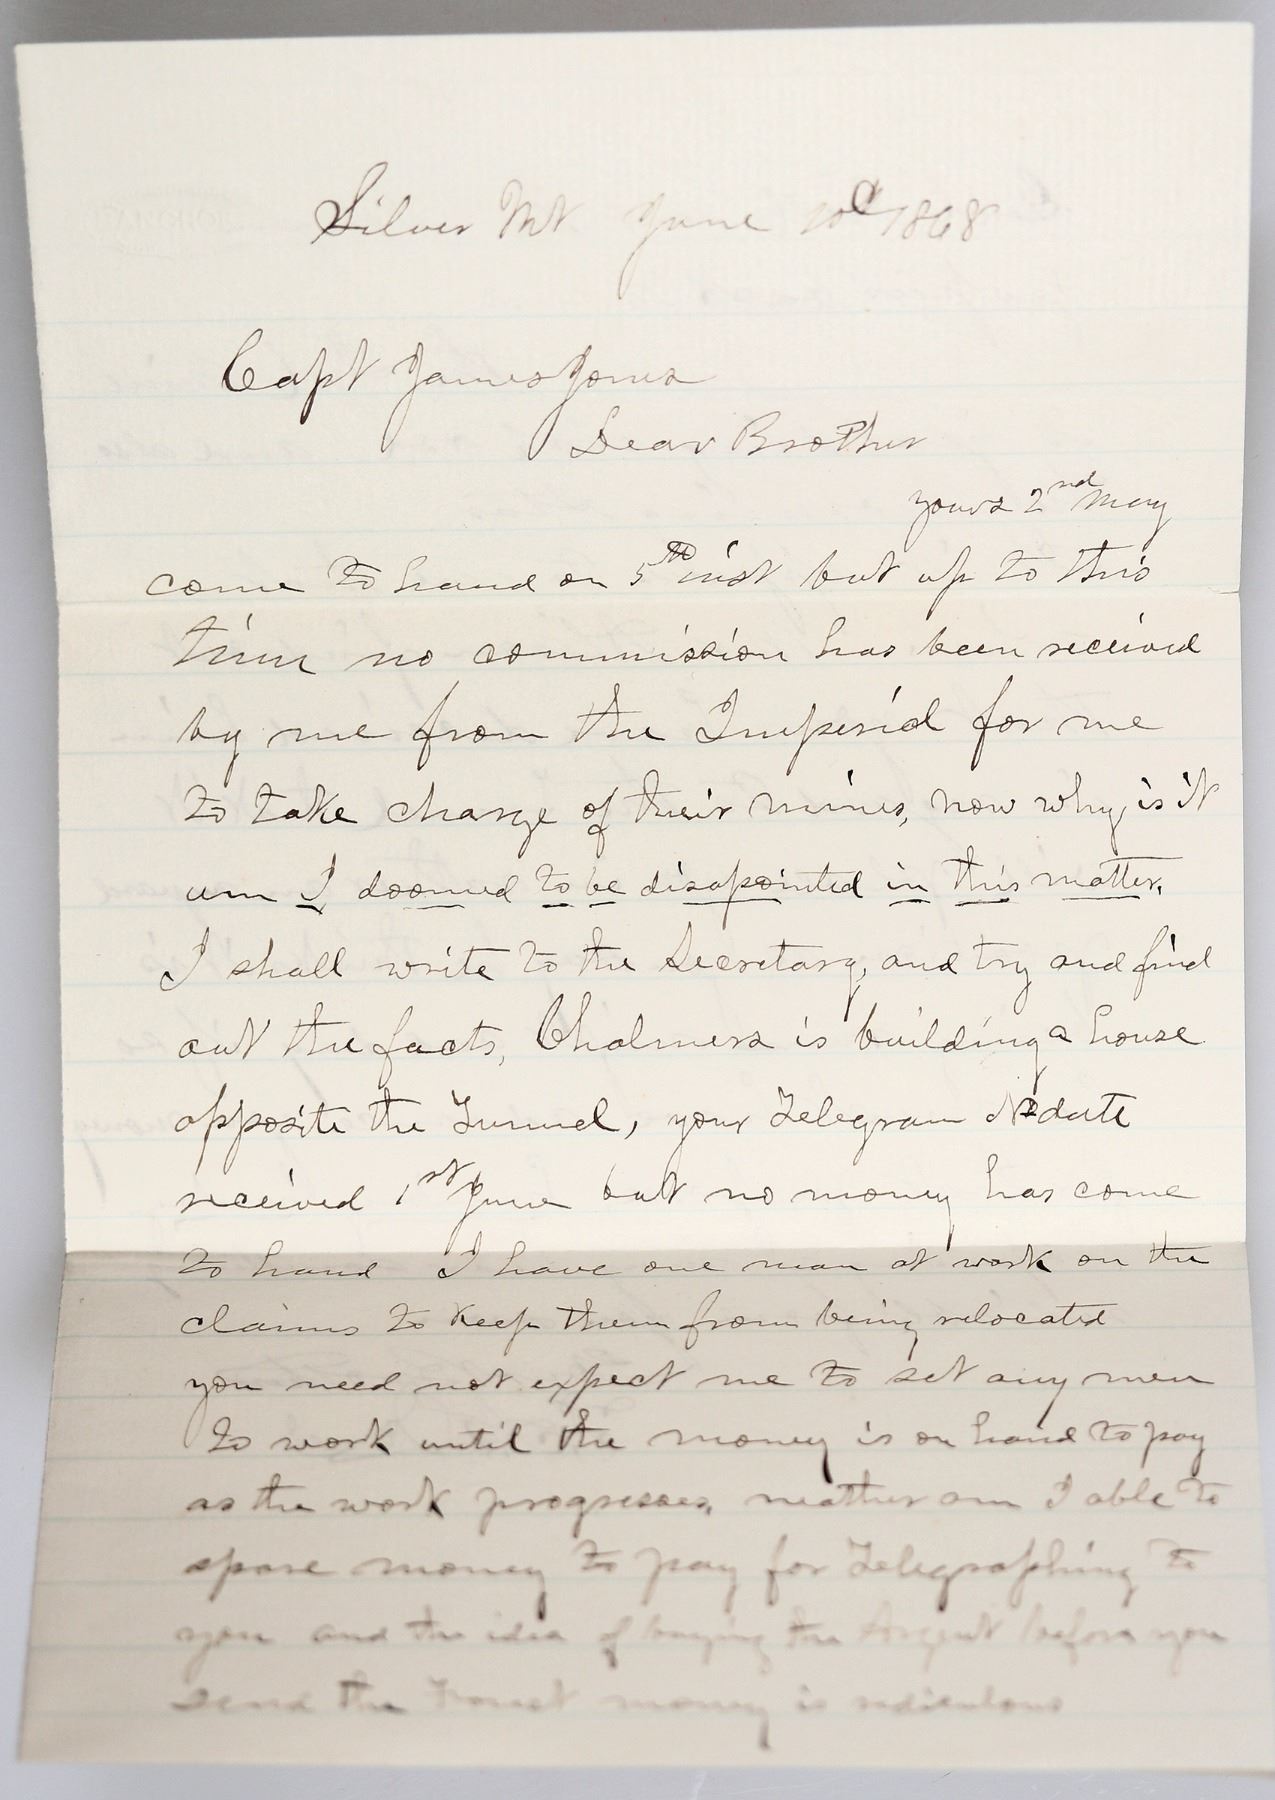 Silver Mt June 10th 1868
Capt James Jones
Dear Brother
yours 2nd May
come to hand on 5th inst but up to this
time no commission has been received
by me from the Imperial for me
to take charge of their mines, now why is it
am I doomed to be disapointed in this matter.
I shall write to the Secretary, and try and find
out the facts, Chalmers is building a house
opposite the Tunnel, your Telegram date
received 1st June but no money has come
to hand I have one man at work on the
claims to keep them from being relocated
you need not expect me to set any men
to work until the money is on hand to pay
as the work progresses, neather am I able to
spare money to pay for Telegraphing to
you and the idea of buying the Argent before you
send the money is rediculous